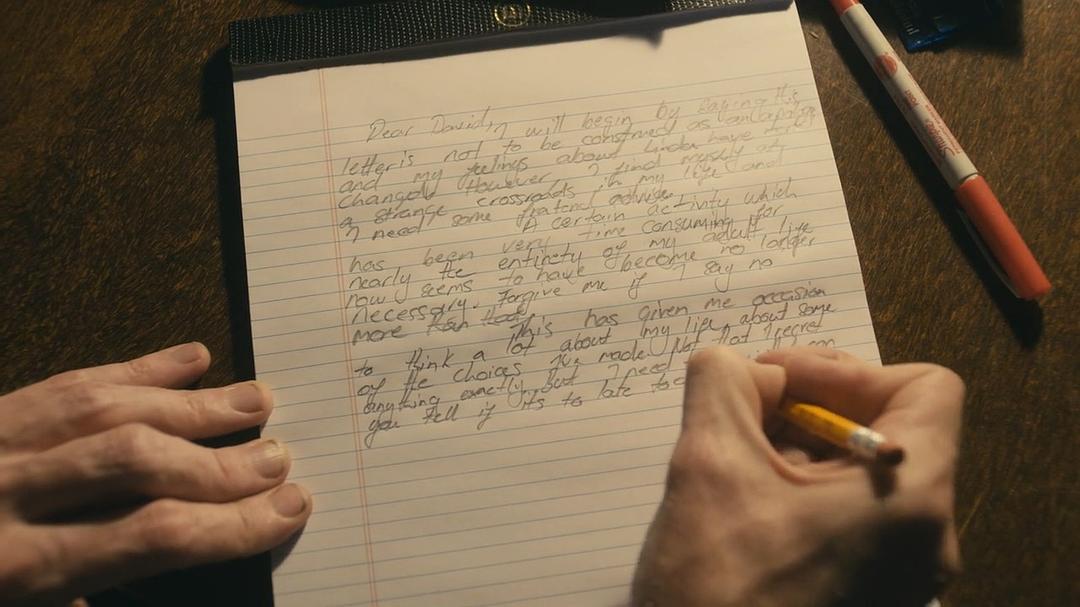 Dear David, I will begin by saying this
letter is not to be construed as an apology
and my feelings about Linda have not
changed. However I find myself at
a strange crossroads in my life and
I need some fraternal advise.
A certain activity which
has been very time consuming for
nearly the entirety of my adult life
now seems to have become no longer
necessary. Forgive me if I say no
more than that.
This has given me occasion
to think a lot about my life about some
of the choices I've made. Not that I regret
anything exactly, but I need
you tell if its to late to